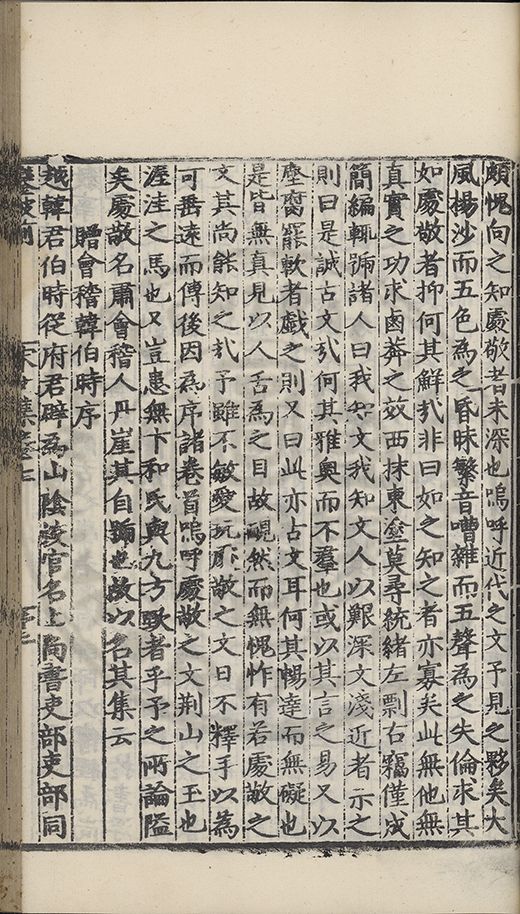 頗愧向之知處敬者未深也嗚呼近代之文予見之夥矣大
風揚沙而五色為之昏昧繁音嘈雜而五聲為之失倫求其
如處敬者抑何其鮮㢤非曰如之知之者亦寡矣此無他無
真實之功求鹵莽之效西抹東塗莫尋統緒左剽右竊僅成
簡編輒號諸人曰我能文我知文人以艱深文淺近者示之
則曰是誠古文㢤何其雅奧而不羣也或以其言之易又以
塵腐窾欵者戲之則又曰此亦古文耳何其暢達而無礙也
是皆無真見以人舌為之目故靦然而無愧怍有若處敬之
文其尚能知之㢤予雖不敏愛玩處敬之文日不釋手以為
可垂遠而傳後因為序諸卷首嗚呼處敬之文荆山之玉也
渥洼之馬也又豈患無卞和氏與九方歅者乎予之所論隘
矣處敬名肅會稽人丹崖其自號也故以名其集云
贈會稽韓伯時序
越韓君伯時從府君辟為山陰校官名上尚書吏部吏部同